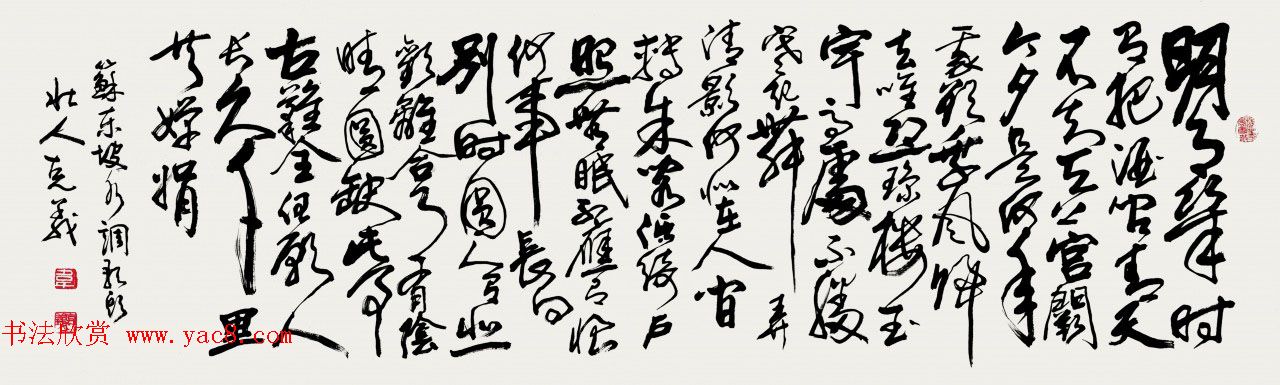 明月幾时
有把酒问青天
不知天上宫闕
今夕是何年
我欲乘风归
去唯恐瓊楼玉
宇高處不勝
寒起舞弄
清影何似在人间
转朱阁低绮户
照無眠不應有恨
何事長向
别时圆人有悲
歡離合月有陰
晴圆缺此事
古難全但愿人
长久千里
共嬋娟
蘇东坡水调歌頭
人克義
书法欣赏 www.yac8.com